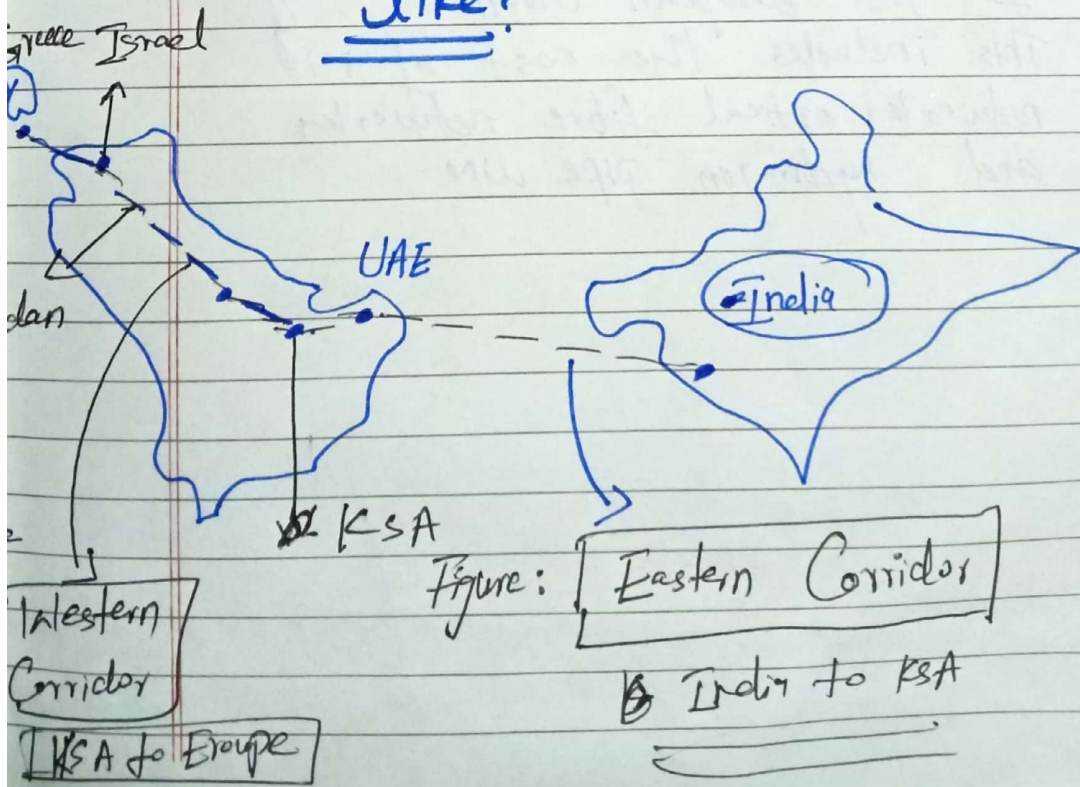 Greece Israel
UAE
India
dan
KSA
Figure: Eastern Corridor
India to KSA
Western
Corridor
KSA to Eroupe